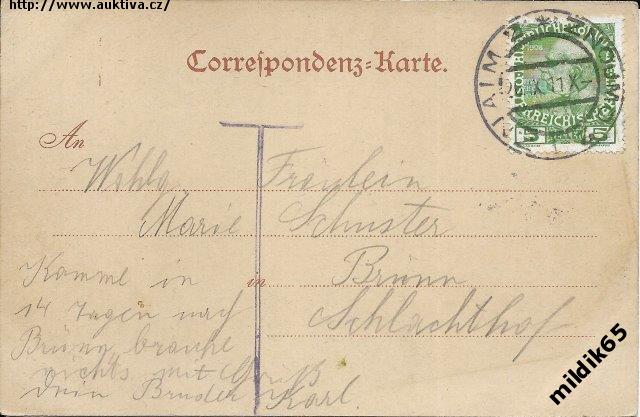 http://www.auktiva.cz/
Correſpondenz=Karte.
ZNAIM 2 * ZNOJMO 2
5 5
An
Wohlg. Fräulein
Marie Schuster
in Brünn
Schlachthof
Komme in
14 Tagen nach
Brünn brauche
nichts mit Gruß
Dein Bruder Karl.
mildik65